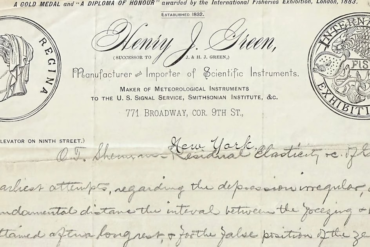 A GOLD MEDAL and "A DIPLOMA OF HONOUR" awarded by the International Fisheries Exhibition, London, 1883.
ESTABLISHED 1832.
Henry J. Green,
(SUCCESSOR TO J. & H. J. GREEN,)
Manufacturer and Importer of Scientific Instruments.
MAKER OF METEOROLOGICAL INSTRUMENTS
TO THE U. S. SIGNAL SERVICE, SMITHSONIAN INSTITUTE, &c.
771 BROADWAY, COR. 9TH ST.,
REGINA
INTERNA
FIS
EXHIBITION
ELEVATOR ON NINTH STREET.)
New York.
Residual Elasticity
earliest attempts, regarding the depression irregular,
fundamental distance the interval between the freezing
attained after longest, & for the false position of the